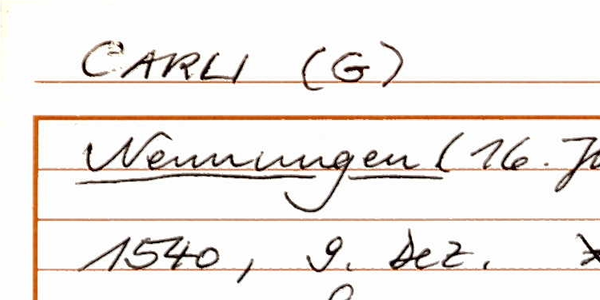 CARLI (G)
Nennungen (16. J
1540, 9. Dez.